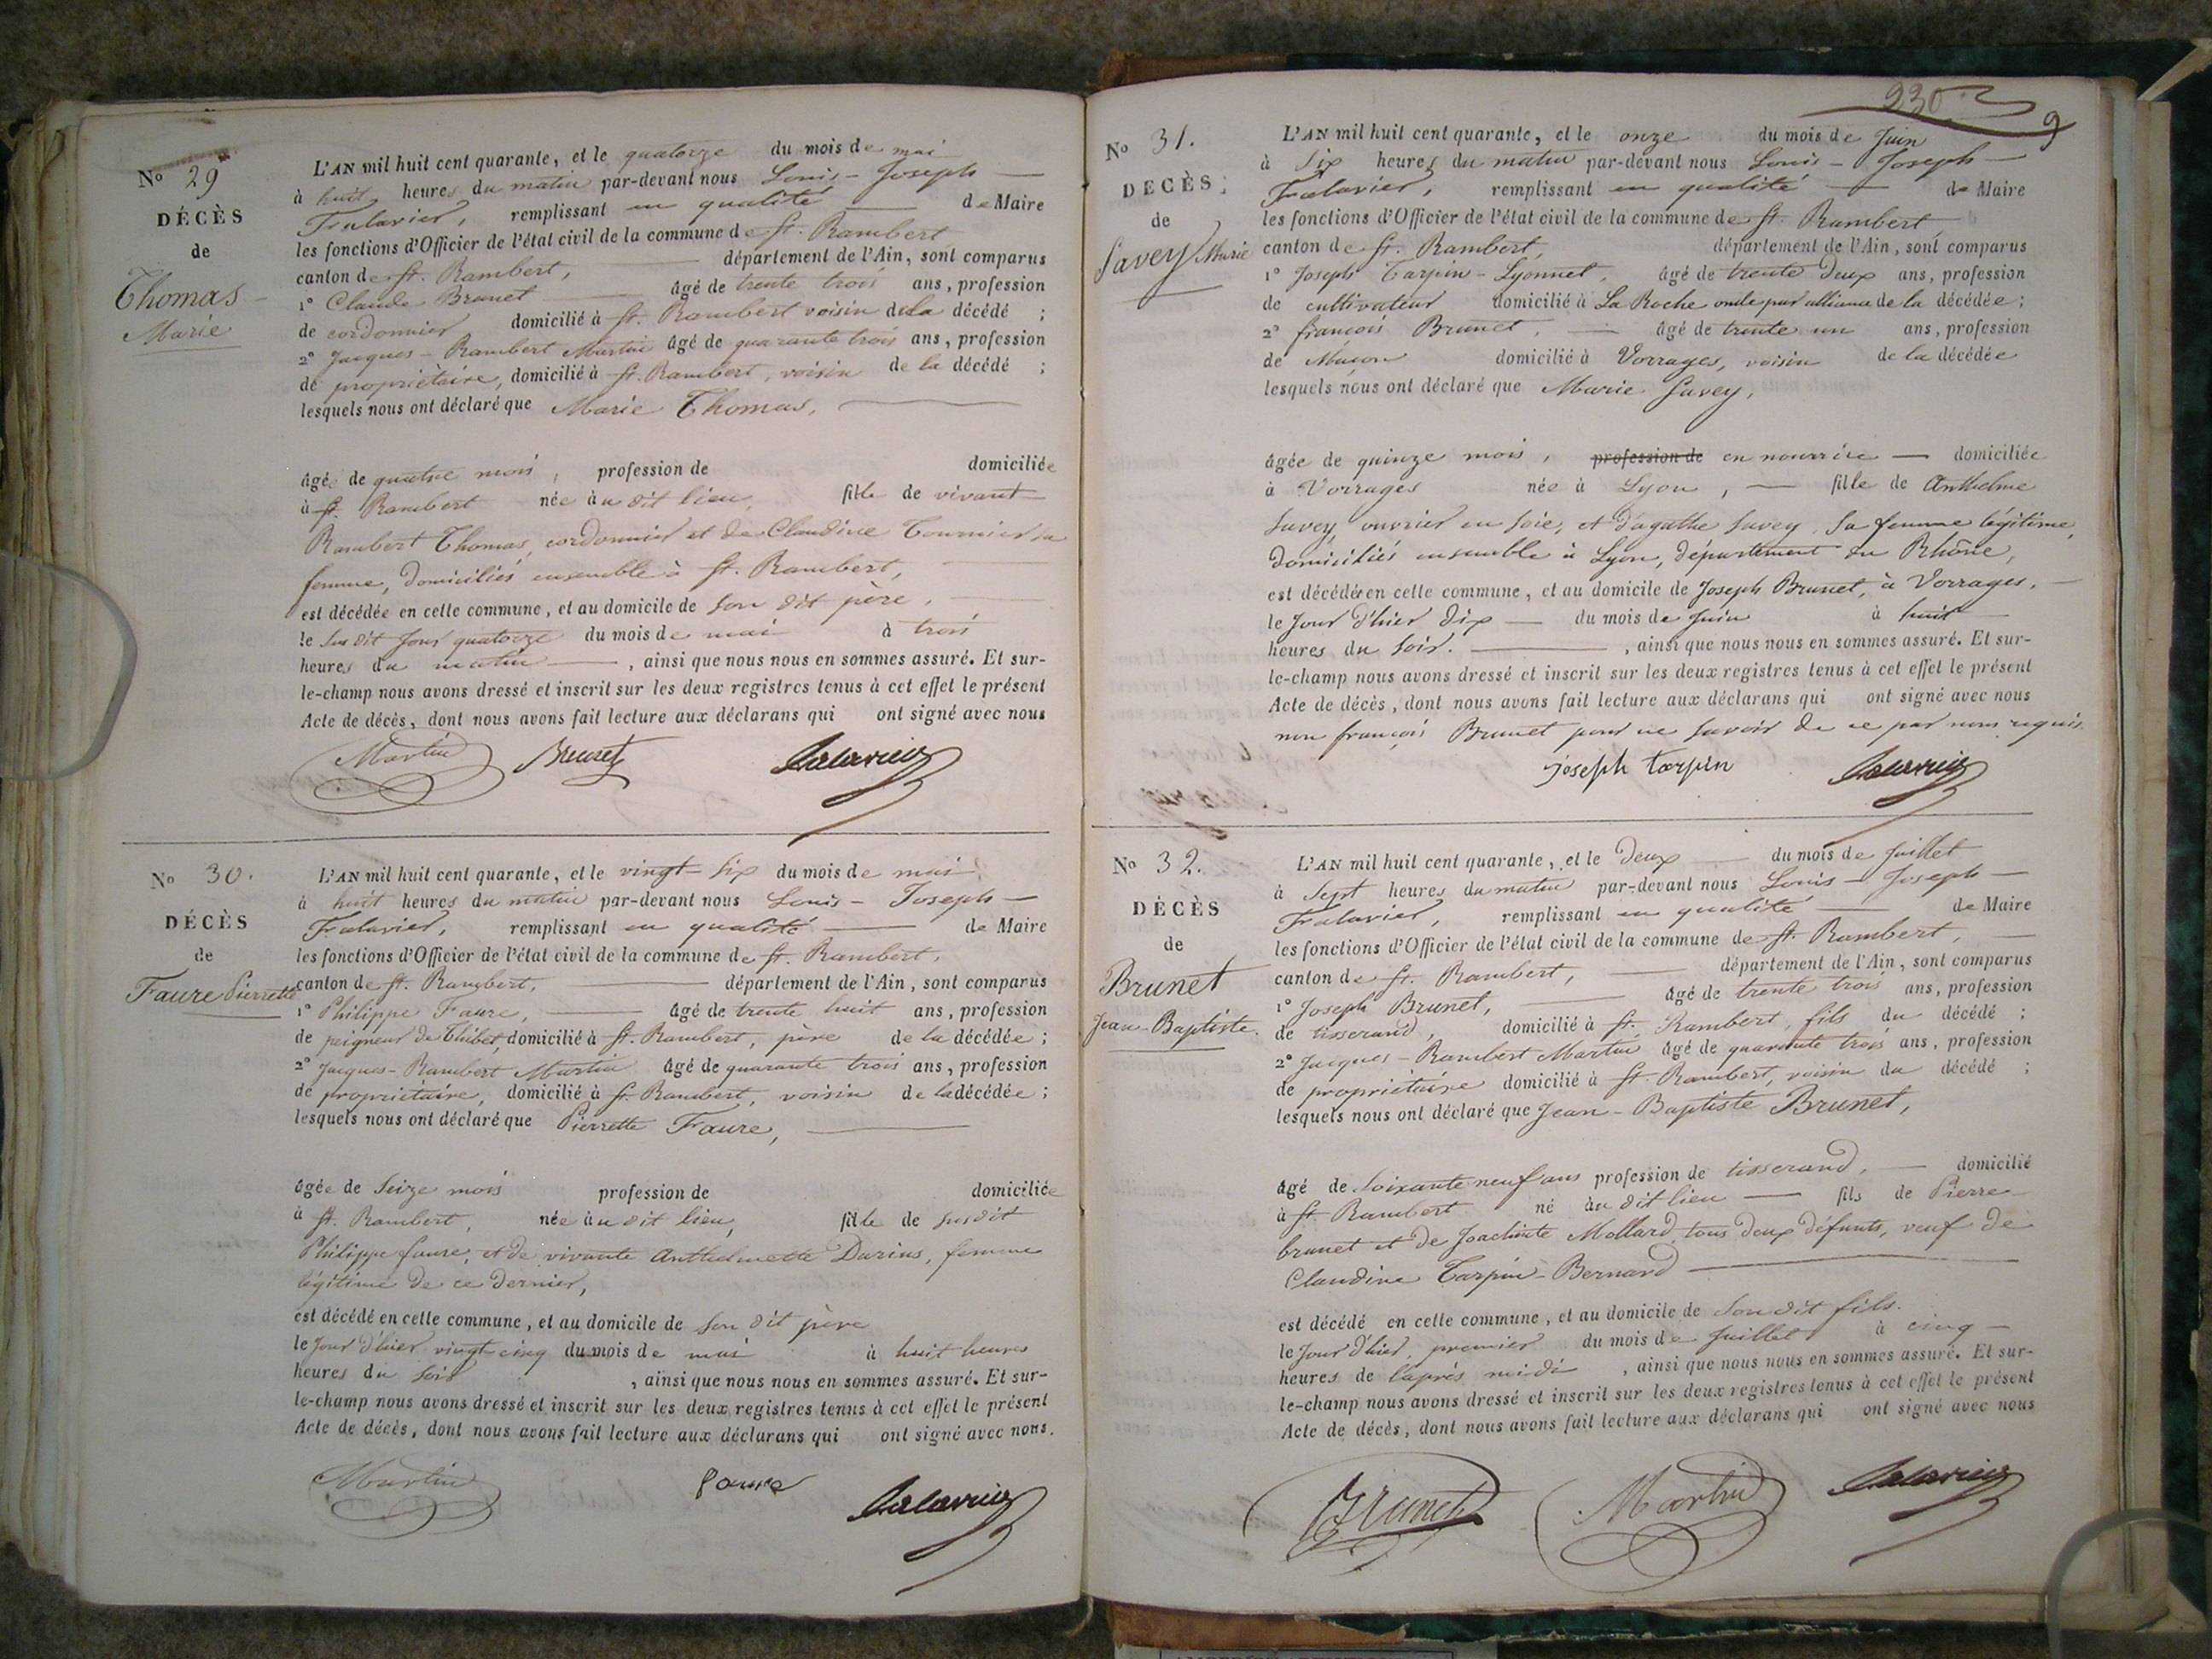 No 29
DÉCÈS
de
Thomas
Marie
L'AN mil huit cent quarante, et le quatorze du mois de mai
à huit heures du matin par-devant nous Louis - Joseph
Falavier, remplissant en qualité de Maire
les fonctions d'Officier de l'état civil de la commune de St. Rambert
canton de St. Rambert, département de l'Ain, sont comparus
1° Claude Brunet âgé de trente trois ans, profession
de cordonnier domicilié à St. Rambert voisin de la décédé ;
2° Jacques - Rambert Martin âgé de quarante trois ans, profession
de propriétaire, domicilié à St. Rambert, voisin de la décédé ;
lesquels nous ont déclaré que Marie Thomas,
âgée de quatre mois, profession de domiciliée
à St. Rambert née au dit lieu, fille de vivant
Rambert Thomas, cordonnier et de Claudine Tournier sa
femme, domiciliés ensemble à St. Rambert,
est décédée en cette commune, et au domicile de son dit père,
le sus dit jour quatorze du mois de mai à trois
heures du matin, ainsi que nous nous en sommes assuré. Et sur-
le-champ nous avons dressé et inscrit sur les deux registres tenus à cet effet le présent
Acte de décès, dont nous avons fait lecture aux déclarans qui ont signé avec nous
Martin Brunet Falavier
No 30.
DÉCÈS
de
Faure Pierrette
L'AN mil huit cent quarante, et le vingt-six du mois de mai
à huit heures du matin par-devant nous Louis - Joseph
Falavier, remplissant en qualité de Maire
les fonctions d'Officier de l'état civil de la commune de St. Rambert,
canton de St. Rambert, département de l'Ain, sont comparus
1° Philippe Faure, âgé de trente huit ans, profession
de peigneur de Thibet, domicilié à St. Rambert, père de la décédée ;
2° Jacques - Rambert Martin âgé de quarante trois ans, profession
de propriétaire, domicilié à St. Rambert, voisin de la décédée ;
lesquels nous ont déclaré que Pierrette Faure,
âgée de seize mois profession de domiciliée
à St. Rambert, née au dit lieu, fille de susdit
Philippe faure, et de vivante Anthelmette Darius, femme
légitime de ce dernier,
est décédé en cette commune, et au domicile de son dit père
le jour d'hier vingt cinq du mois de mai à huit heures
heures du soir, ainsi que nous nous en sommes assuré. Et sur-
le-champ nous avons dressé et inscrit sur les deux registres tenus à cet effet le présent
Acte de décès, dont nous avons fait lecture aux déclarans qui ont signé avec nous.
Martin faure Falavier
230
9
No 31.
DECÈS
de
Savey Marie
L'AN mil huit cent quarante, et le onze du mois de Juin
à six heures du matin par-devant nous Louis - Joseph
Falavier, remplissant en qualité de Maire
les fonctions d'Officier de l'état civil de la commune de St. Rambert
canton de St. Rambert, département de l'Ain, sont comparus
1° Joseph Tarpin - Lyonnet, âgé de trente deux ans, profession
de cultivateur domicilié à La Roche oncle par alliance de la décédée ;
2° françois Brunet, âgé de trente un ans, profession
de Maçon domicilié à Vorrages, voisin de la décédée
lesquels nous ont déclaré que Marie Savey,
âgée de quinze mois, profession de en nourrice domiciliée
à Vorrages née à Lyon, fille de Anthelme
Savey ouvrier en soie, et d'agathe Savey, sa femme légitime,
domiciliés ensemble à Lyon, département du Rhône,
est décédée en cette commune, et au domicile de Joseph Brunet, à Vorrages,
le jour d'hier dix du mois de Juin à huit
heures du soir., ainsi que nous nous en sommes assuré. Et sur-
le-champ nous avons dressé et inscrit sur les deux registres tenus à cet effet le présent
Acte de décès, dont nous avons fait lecture aux déclarans qui ont signé avec nous
non françois Brunet pour ne savoir de ce par nous requis.
joseph tarpin Falavier
No 32.
DÉCÈS
de
Brunet
Jean-Baptiste.
L'AN mil huit cent quarante, et le deux du mois de Juillet
à sept heures du matin par-devant nous Louis - Joseph
Falavier, remplissant en qualité de Maire
les fonctions d'Officier de l'état civil de la commune de St. Rambert,
canton de St. Rambert, département de l'Ain, sont comparus
1° Joseph Brunet, âgé de trente trois ans, profession
de tisserand, domicilié à St. Rambert, fils du décédé ;
2° Jacques - Rambert Martin âgé de quarante trois ans, profession
de propriétaire domicilié à St. Rambert, voisin du décédé ;
lesquels nous ont déclaré que Jean - Baptiste Brunet,
âgé de soixante neuf ans profession de tisserand, domicilié
à St. Rambert né au dit lieu fils de Pierre
brunet et de Joachinte Mollard, tous deux défunts, veuf de
Claudine Tarpin - Bernard
est décédé en cette commune, et au domicile de son dit fils.
le jour d'hier, premier du mois de Juillet à cinq
heures de l'après midi, ainsi que nous nous en sommes assuré. Et sur-
le-champ nous avons dressé et inscrit sur les deux registres tenus à cet effet le présent
Acte de décès, dont nous avons fait lecture aux déclarans qui ont signé avec nous
Brunet Martin Falavier